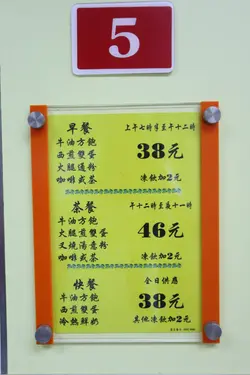 5
早餐 上午七時學至午十二時
牛油方飽
西煎雙蛋 38元
火腿通粉
咖啡或茶 凍飲加2元
茶餐 午十二時至夜十一時
牛油方飽
火腿煎雙蛋 46元
叉燒湯意粉
咖啡或茶 凍飲加2元
快餐 全日供應
牛油方飽 38元
西煎雙蛋
冷熱鮮奶 其他凍飲加2元